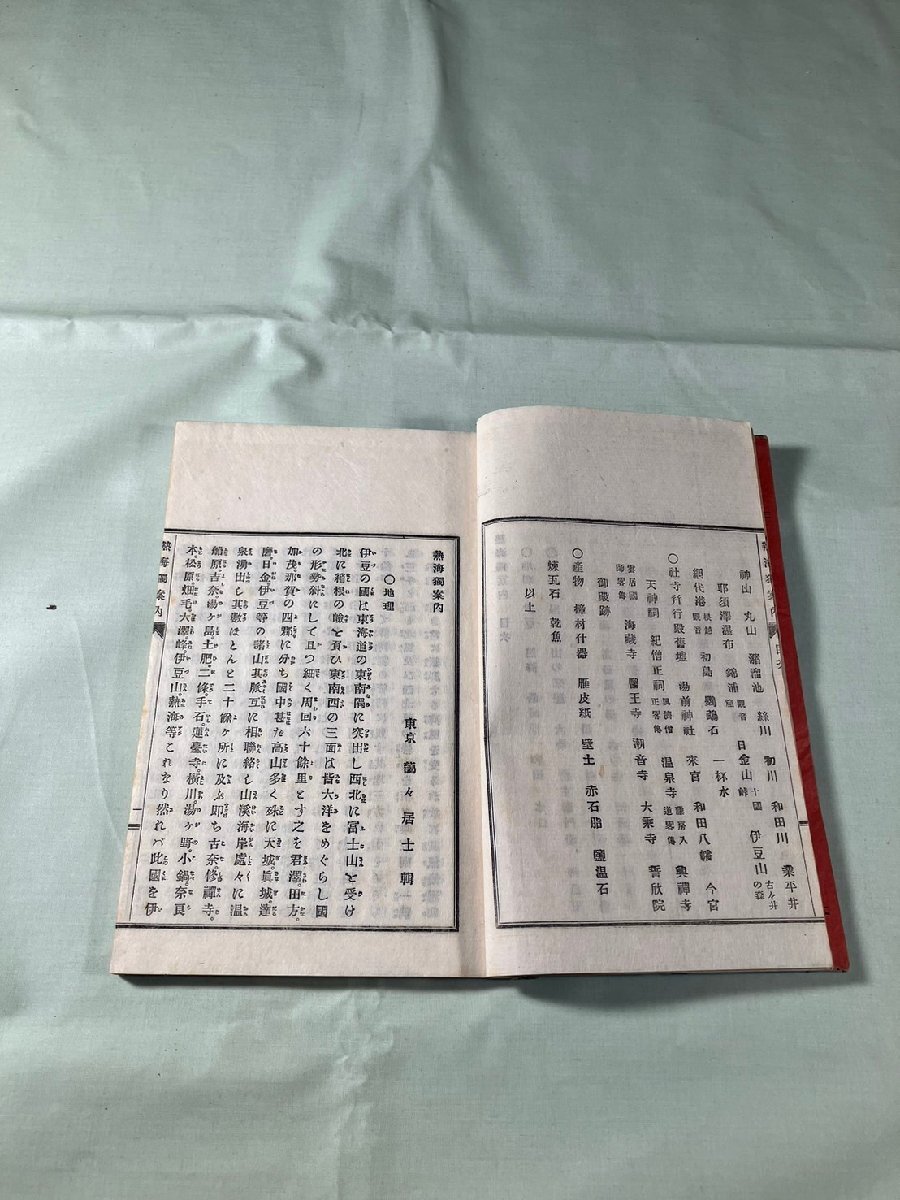 神山 丸山 溜池 観音 絲川 初川 和田川 業平井
耶須澤瀑布 錦浦 日金山 十國峠 伊豆山
網代港 初島 鸚鵡石 一杯水
○社寺行殿舊壇 湯前神社 來宮 和田八幡 今宮
天神祠 紀僧正祠 温泉寺 興禪寺
海藏寺 國王寺 潮音寺 大乘寺 誓欣院
御殿跡
○產物 楠村什器 雁皮紙 堊土 赤石脂 温石
煉玉石 乾魚
○以上
熱海獨案内
熱海獨案内
○地理
東京 居士 輯
伊豆の國は東海道の東南隅に突出し西北に富士山を受け
北に箱根の嶮を負ひ東南西の三面は皆大洋をめぐらし國
の形勢狹にして且つ細く周回六十餘里とす之を君澤。田方。
加茂那賀の四郡に分ち國中甚た高山多く殊に天城。眞城。達
磨日金伊豆等の諸山其脈互に相聯絡し山溪海岸處々に温
泉湧出し其數ほとんと二十餘ヶ所に及ぶ即ち古奈。修禪寺。
船原吉奈湯ヶ島。土肥。二條。手石。蓮臺寺。横川湯ヶ野。小鍋。奈良
本松原畑毛大澤峰伊豆山熱海等これなり然れバ此國を伊
熱海獨案内